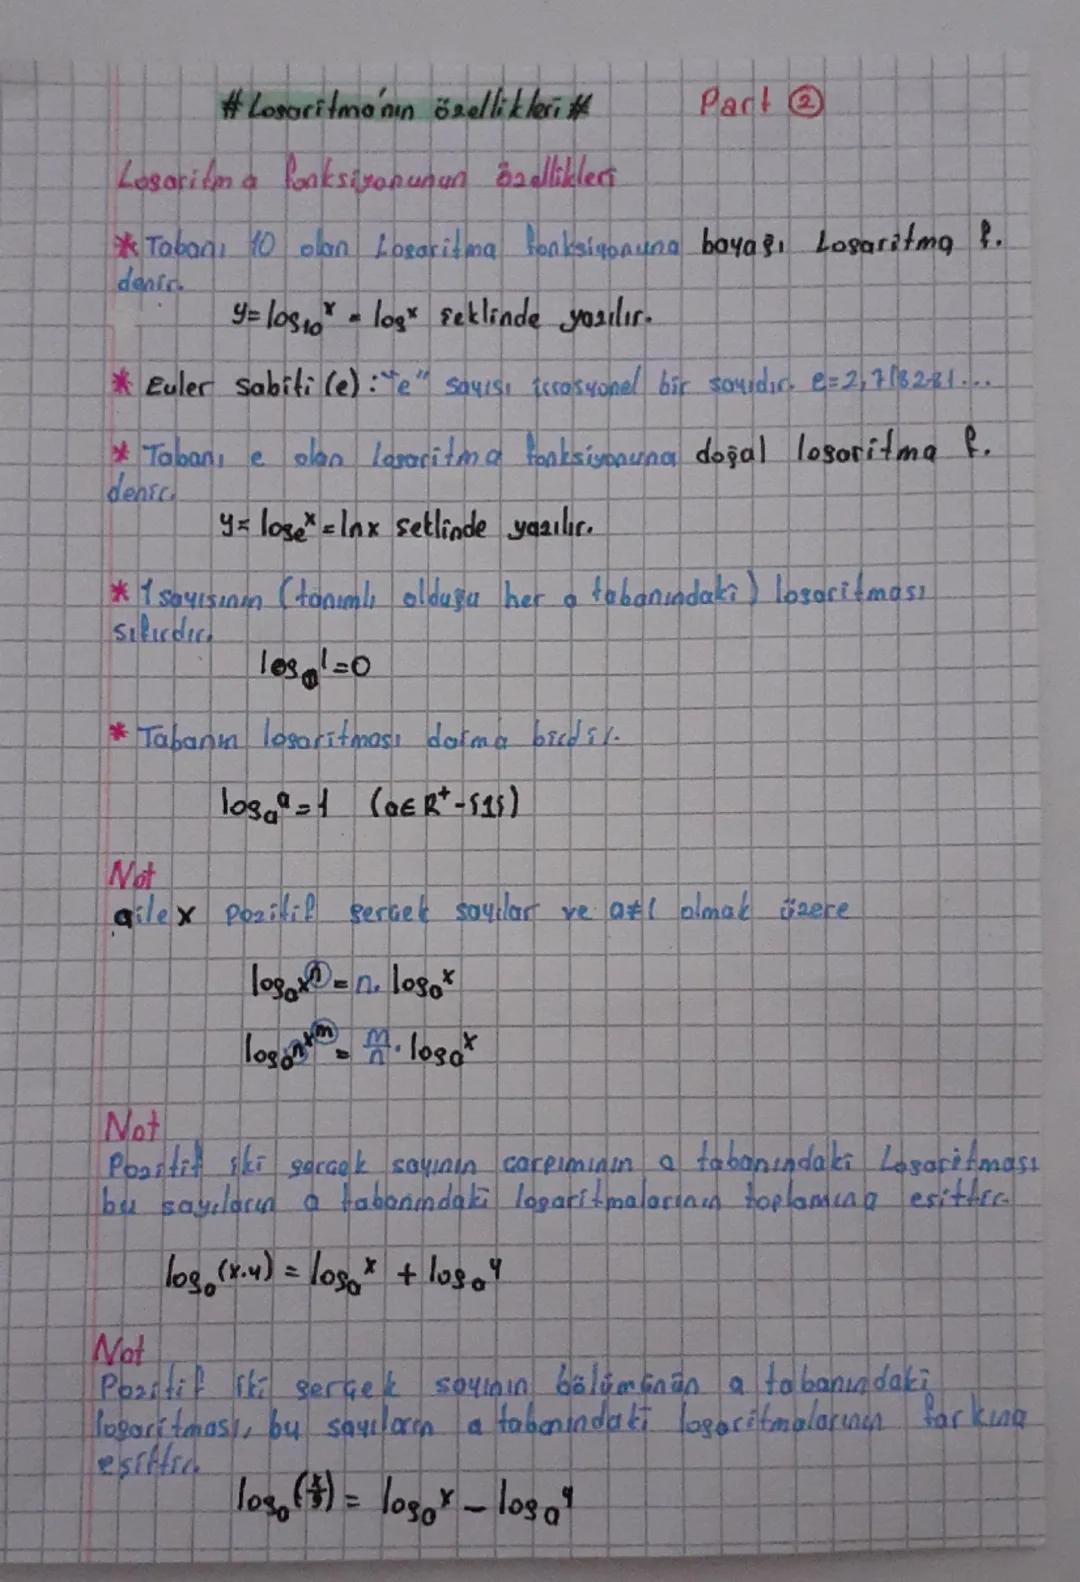 # Logaritma'nın özellikleri # Part ②
Logaritma fonksiyonunun özellikleri
* Tabanı 10 olan Logaritma fonksiyonuna bayağı Logaritma f.
denir.
y=log₁₀ˣ = logˣ şeklinde yazılır.
* Euler sabiti (e) : "e" sayısı irrasyonel bir sayıdır. e=2,718281...
* Tabanı e olan logaritma fonksiyonuna doğal logaritma f.
denir.
y= logₑˣ = lnx şeklinde yazılır.
* 1 sayısının (tanımlı olduğu her a tabanındaki) logaritması
sıfırdır.
logₐ¹=0
* Tabanın logaritması daima birdir.
logₐᵃ=1 (a∈R⁺-{1})
Not
a ile x pozitif gerçek sayılar ve a≠1 olmak üzere
logₐxⁿ = n. logₐˣ
logₐₙxᵐ = m/n . logₐˣ
Not
Pozitif iki gerçek sayının çarpımının a tabanındaki Logaritması
bu sayıların a tabanındaki logaritmalarının toplamına eşittir.
logₐ(x.y) = logₐˣ + logₐʸ
Not
Pozitif iki gerçek sayının bölümünün a tabanındaki
logaritması, bu sayıların a tabanındaki logaritmalarının farkına
eşittir.
logₐ(x/y) = logₐˣ - logₐʸ